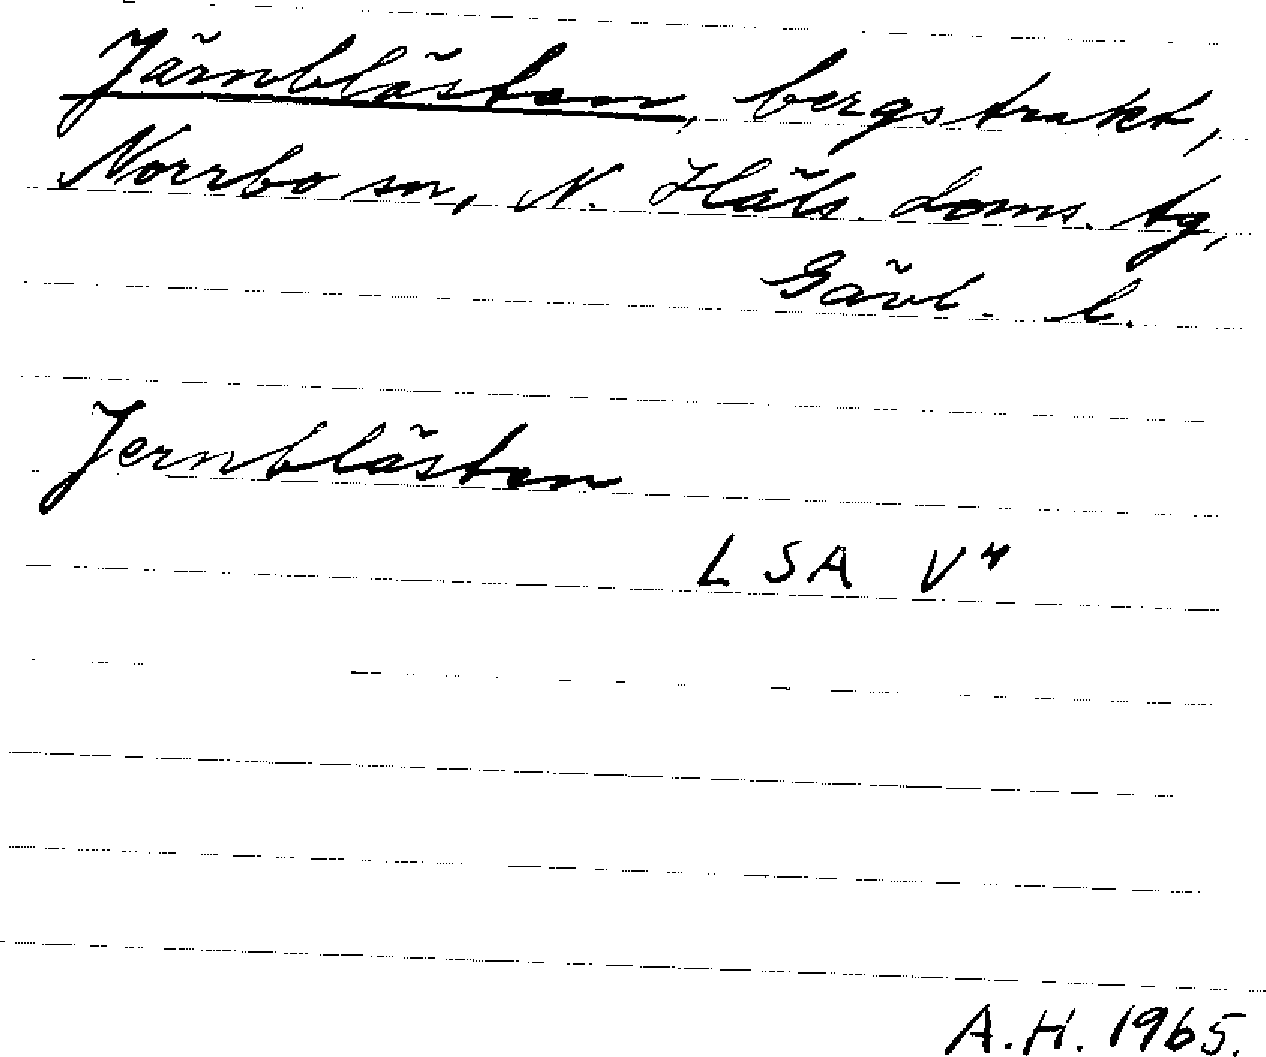 Järnblästen, bergstrakt,
Norrbo sn, N. Häls. doms. tg,
Gävl. l.
Jernblästen
LSA V⁴
A.H. 1965.